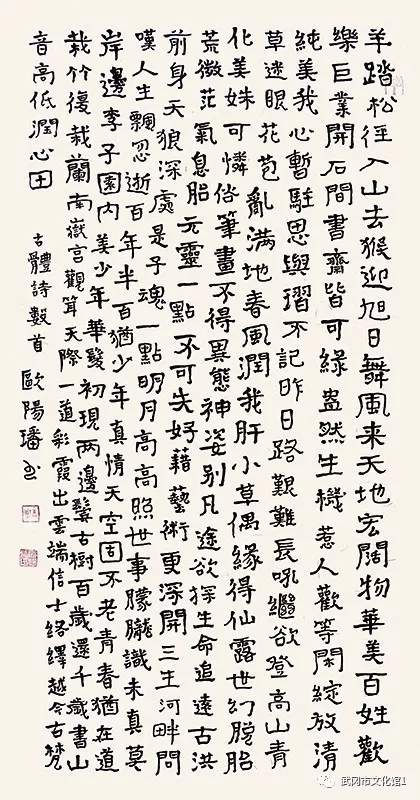 羊踏松徑入山去猴迎旭日舞風来天地宏闊物華美百姓歡
樂巨業開石間書齋皆可緣盎然生機惹人歡等閑綻放清
純美我心暫駐思與摺不記昨日路艱難長吼繼欲登高山青
草迷眼花苞亂滿地春風潤我肝小草偶緣得仙露世幻脱胎
化美姝可憐俗筆畫不得異態神姿别凡途欲探生命追遠古洪
荒微茫氣息胎元靈一點不可失好藉藝術更深開三生河畔問
前身天狼深處是子魂一點明月高高照世事朦朧識未真莫
嘆人生飄忽逝百年半百猶少年真情天空固不老青春猶在道
岸邊李子園内美少年華髮初現两邊鬢古樹百歲還千歲書山
栽竹復栽蘭南嶽宫觀聳天際一道彩霞出雲端信士絡繹越今古梵
音高低潤心田
古體詩數首 歐陽璠书
武冈市文化馆1